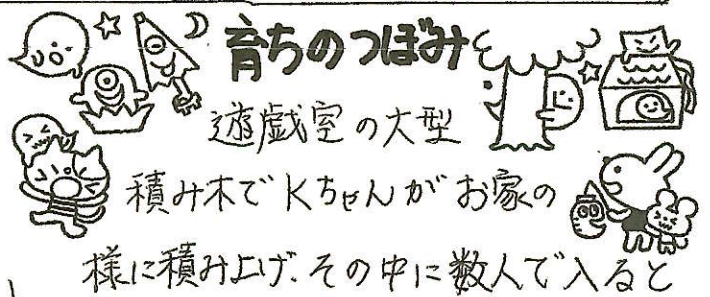 育ちのつぼみ
遊戯室の大型
積み木でKちゃんがお家の
様に積み上げ、その中に数人で入ると